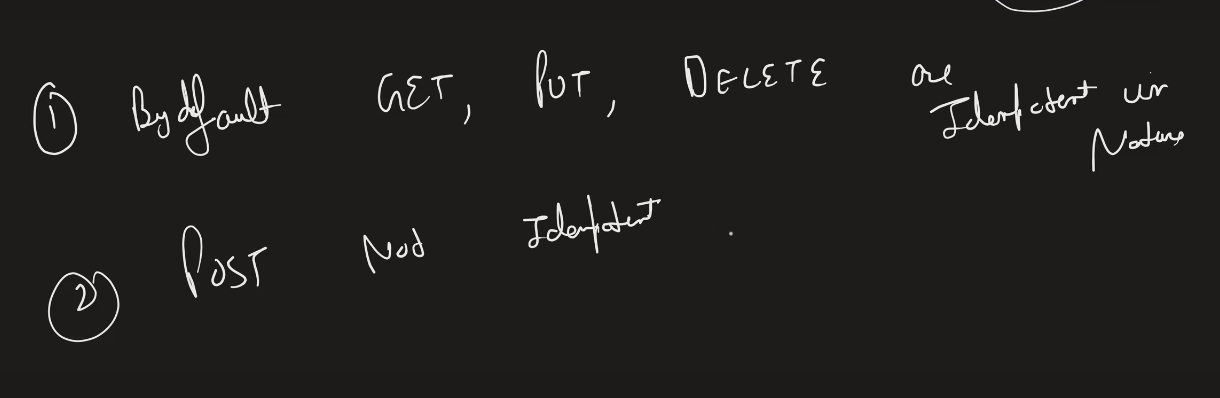 ① By default GET, PUT, DELETE are Idempotent in Nature
② POST Not Idempotent